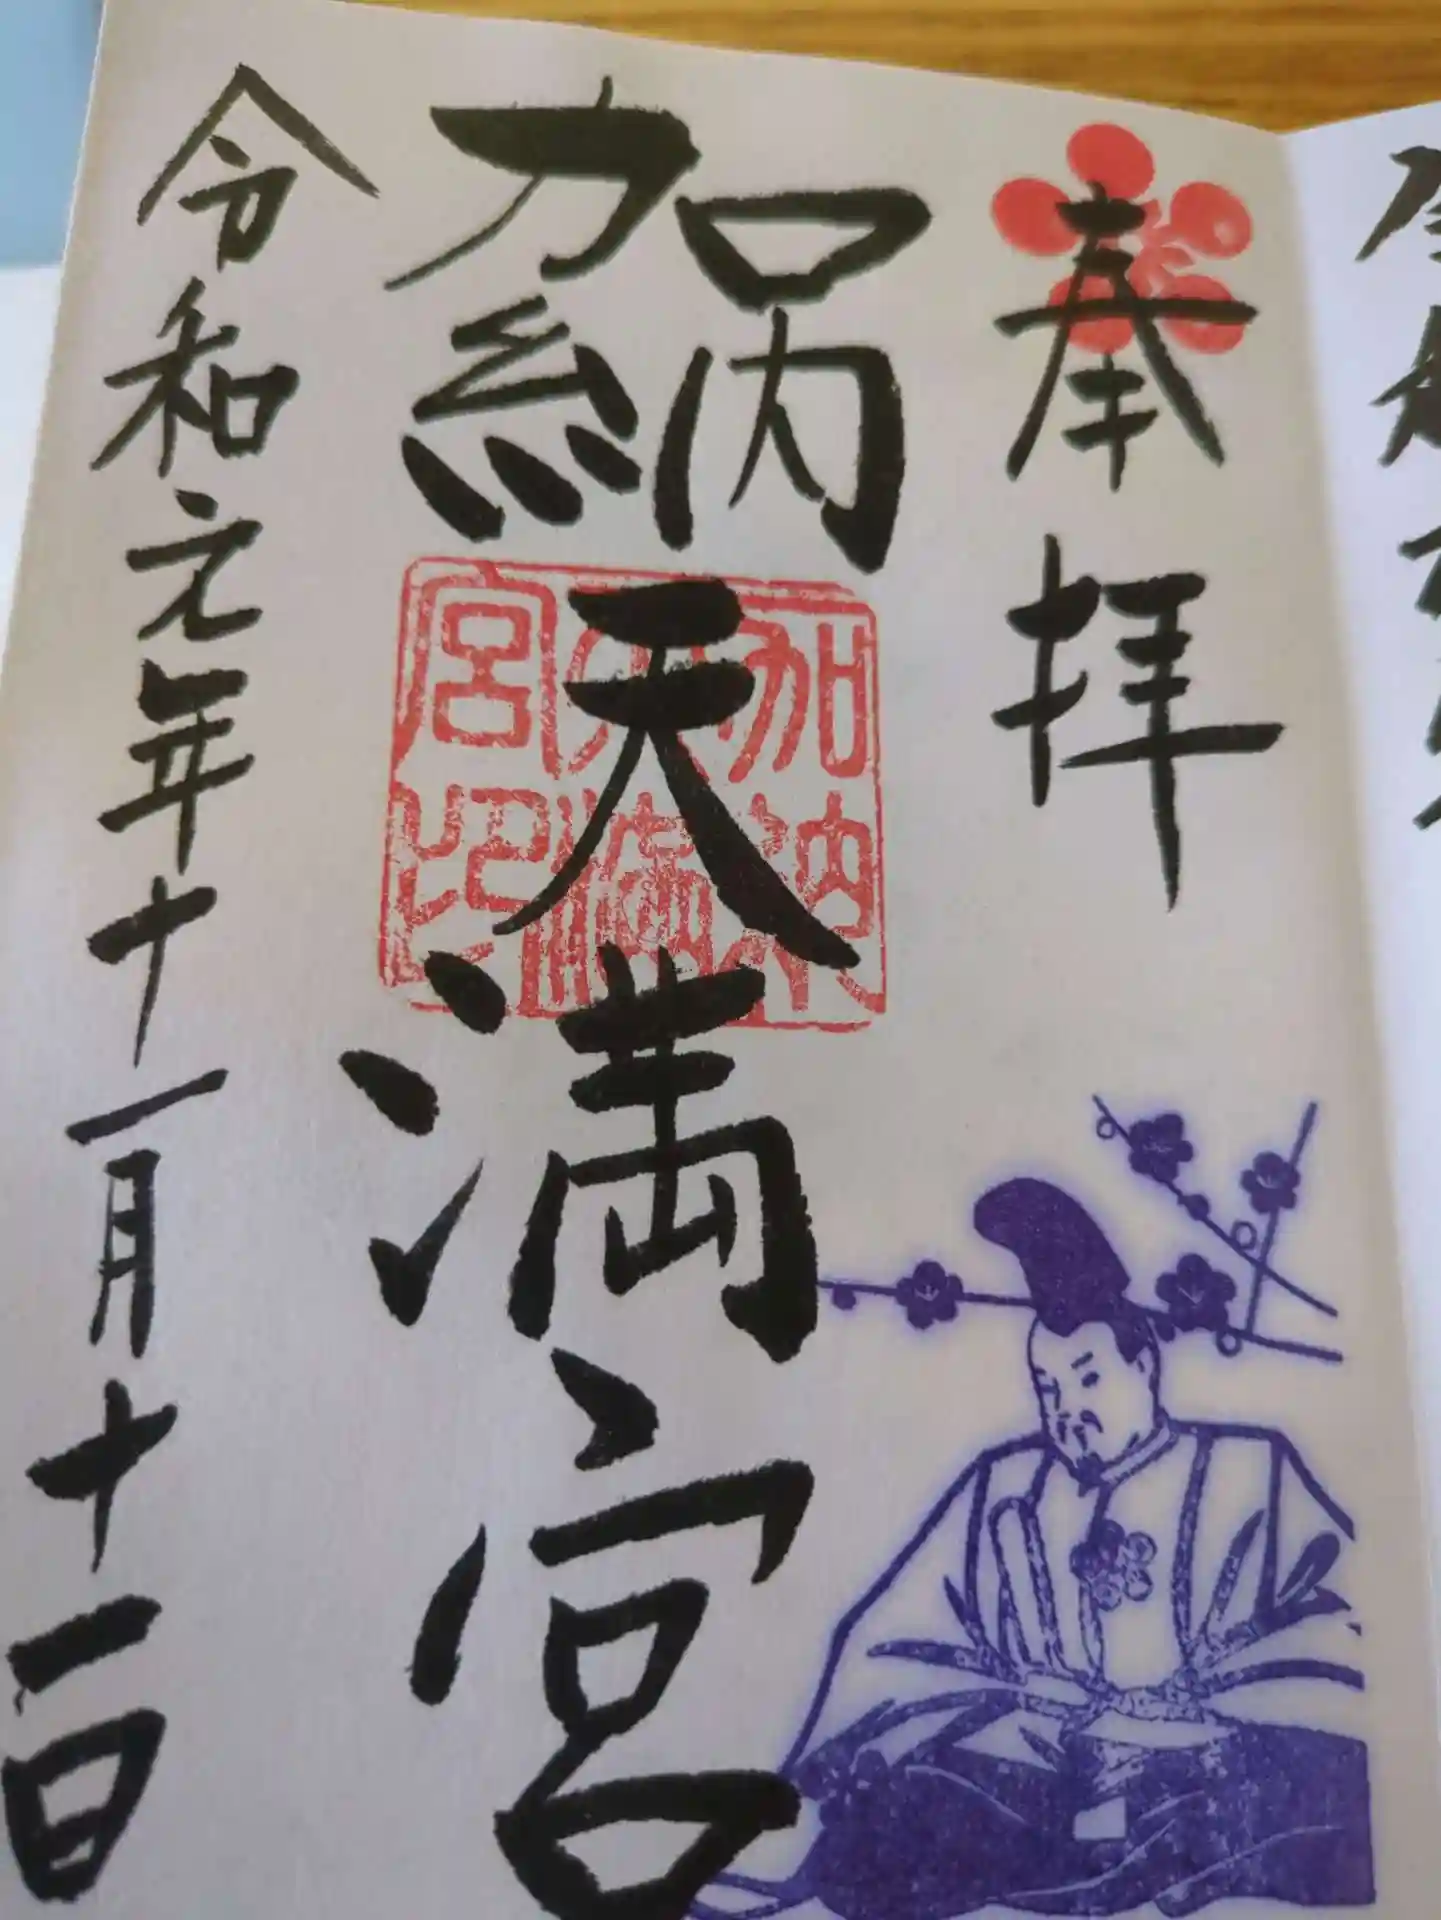 奉拝
加納天満宮
加納天満宮印
令和元年十一月十一日